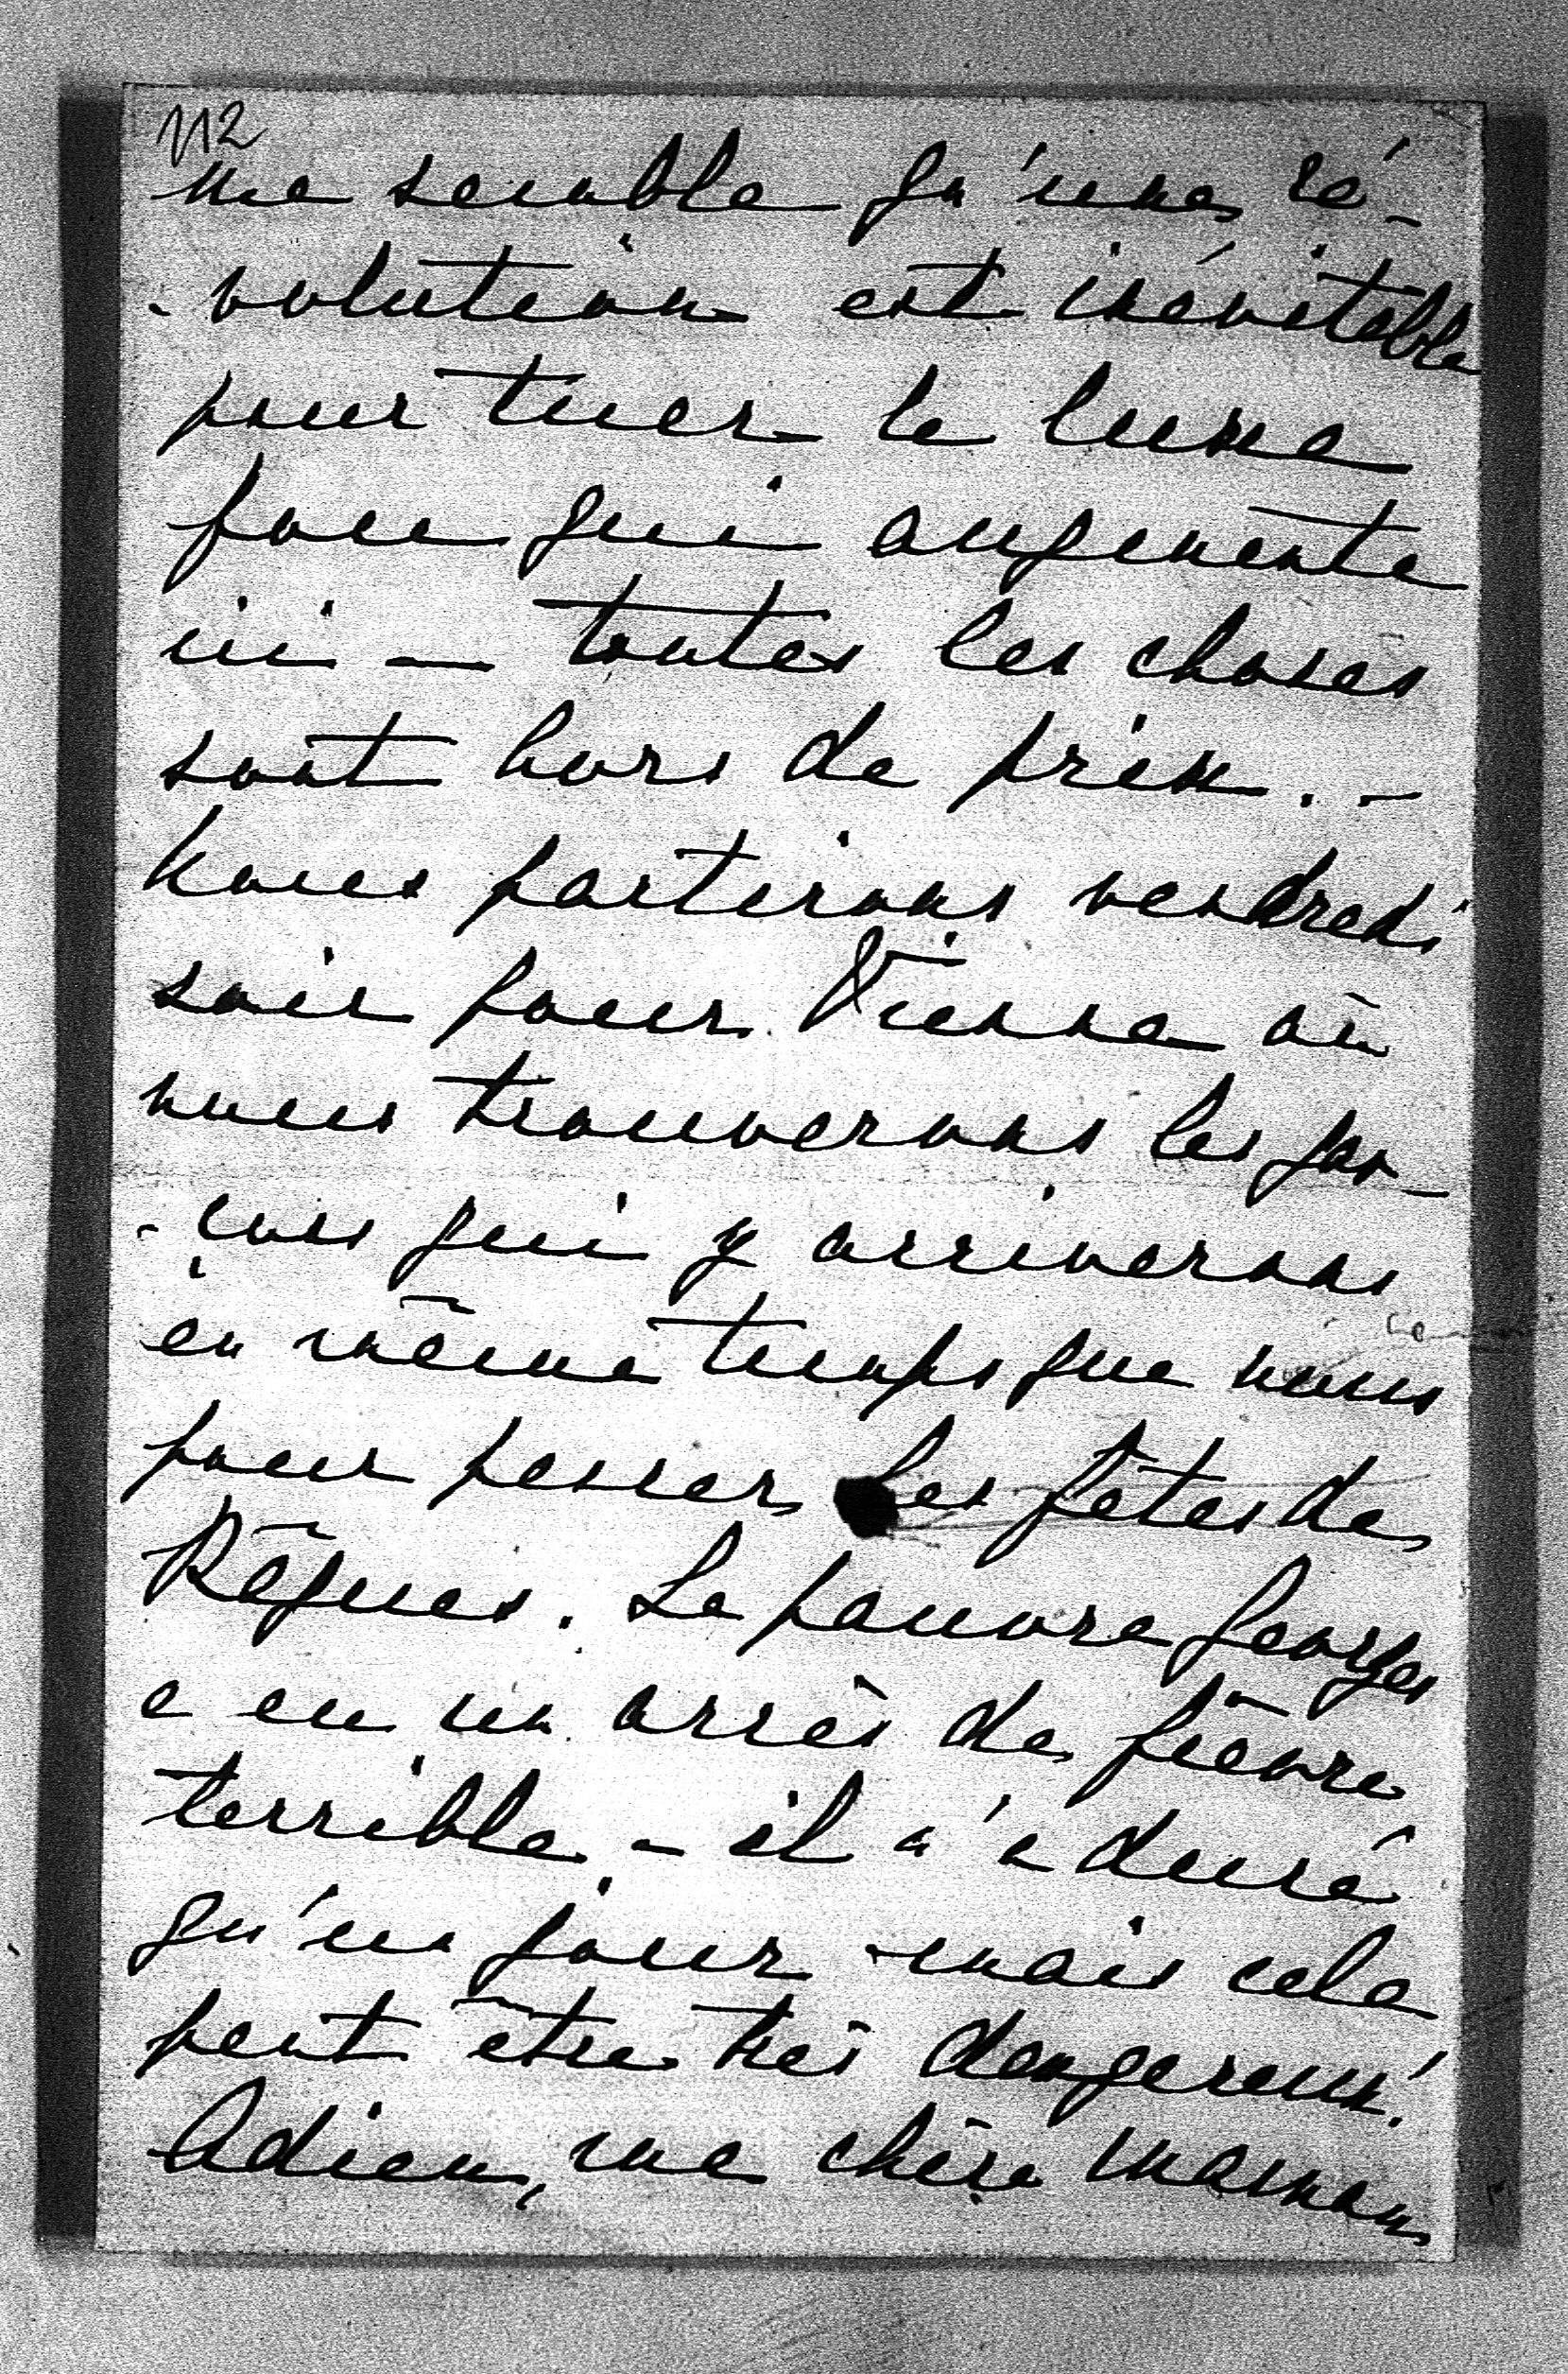 112
me semble qu'une ré-
-volution est inévitable
pour tuer le luxe
fou qui augmente
ici — toutes les choses
sont hors de prix. -
Nous partirons vendredi
soir pour Vienne où
nous trouverons les gar-
-çons qui y arriverons
en même temps que nous
pour passer les fêtes de
Pâques. Le pauvre Georges
a eu un accès de fièvre
terrible - il n'a duré
qu'un jour mais cela
peut être très dangereux!
Adieu, ma chère maman